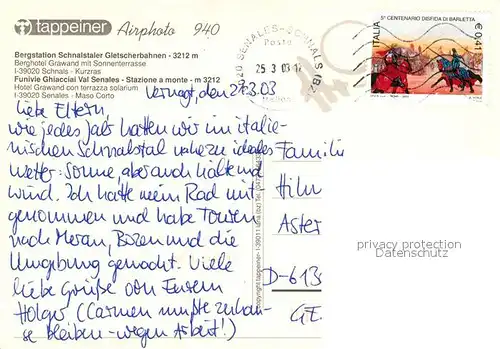 tappeiner Airphoto 940
Bergstation Schnalstaler Gletscherbahnen - 3212 m
Berghotel Grawand mit Sonnenterrasse
I-39020 Schnals - Kurzras
Funivie Ghiacciai Val Senales - Stazione a monte - m 3212
Hotel Grawand con terrazza solarium
I-39020 Senales - Maso Corto
39020 SENALES-SCHNALS (BZ)
Poste
25 3 03
Italiane
5° CENTENARIO DISFIDA DI BARLETTA
ITALIA
€ 0,41
Vernagt, den 24.3.03
Liebe Eltern,
wie jedes Jahr hatten wir im italie-
nischen Schnalstal nahezu ideales
Wetter: Sonne, aber auch kälte und
Wind. Ich hatte mein Rad mit-
genommen und habe Touren
nach Meran, Bozen und die
Umgebung gemacht. Viele
liebe Grüße von Eurem
Holger (Carmen mußte zuhau-
se bleiben - wegen Arbeit!)
Familie
Hilm
Aster
D-613
GE
privacy protection
Datenschutz
copyright tappeiner - I-39011 lana (bz)